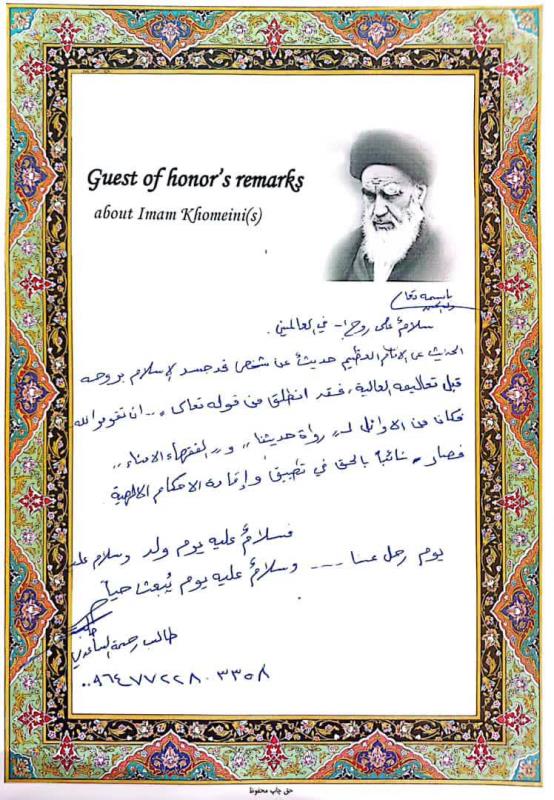 Guest of honor's remarks
about Imam Khomeini(s)
باسمه تعالى
سلامٌ على روح الله في العالمين.
الحديث عن الامام العظيم حديثٌ عن شخص قد جسد الإسلام بروحه
قبل تعاليمه العالية، فقد انطلق من قوله تعالى ,,.. ان تقوموا لله
فكان من الاوائل لـ ,, رواة حديثنا ,, و ,, الفقهاء الامناء ,,
فصار نائباً بالحق في تطبيق وإقامة الاحكام الالهية
فسلامٌ عليه يوم ولد وسلام عليه
يوم رحل عنا ---- وسلامٌ عليه يوم يُبعث حياً
طالب رحمة الساعدي
٠٠٩٦٤٧٧٢٢٨٠٣٣٥٨
حق چاپ محفوظ